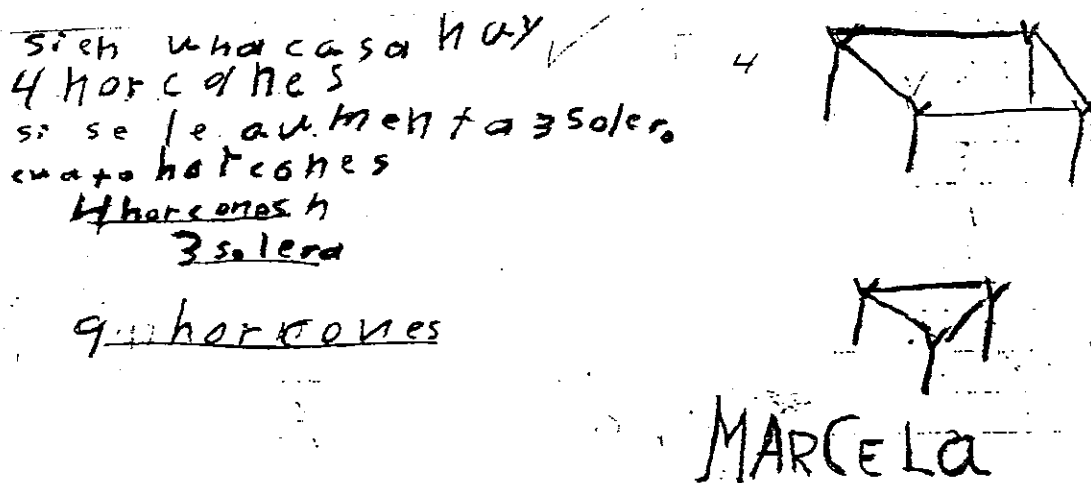 si en una casa hay
4 horcones
si se le aumenta 3 solera
cuato horcones
4 horcones h
3 solera
9 horcones
4
MARCELa